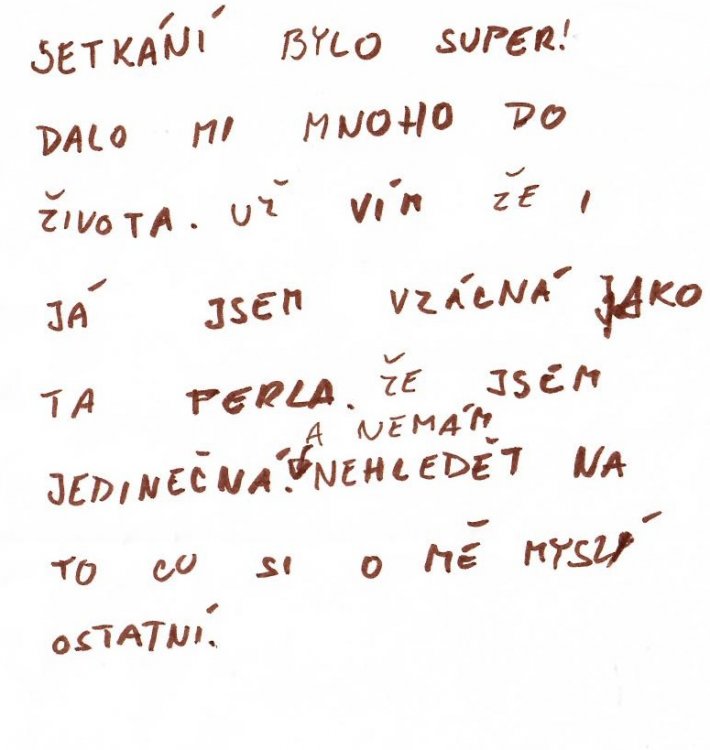 SETKÁNÍ BYLO SUPER!
DALO MI MNOHO DO
ŽIVOTA. UŽ VÍM ŽE I
JÁ JSEM VZÁCNÁ JAKO
TA PERLA. ŽE JSEM
A NEMÁM
JEDINEČNÁ. NEHLEDĚT NA
TO CO SI O MĚ MYSLÍ
OSTATNÍ.